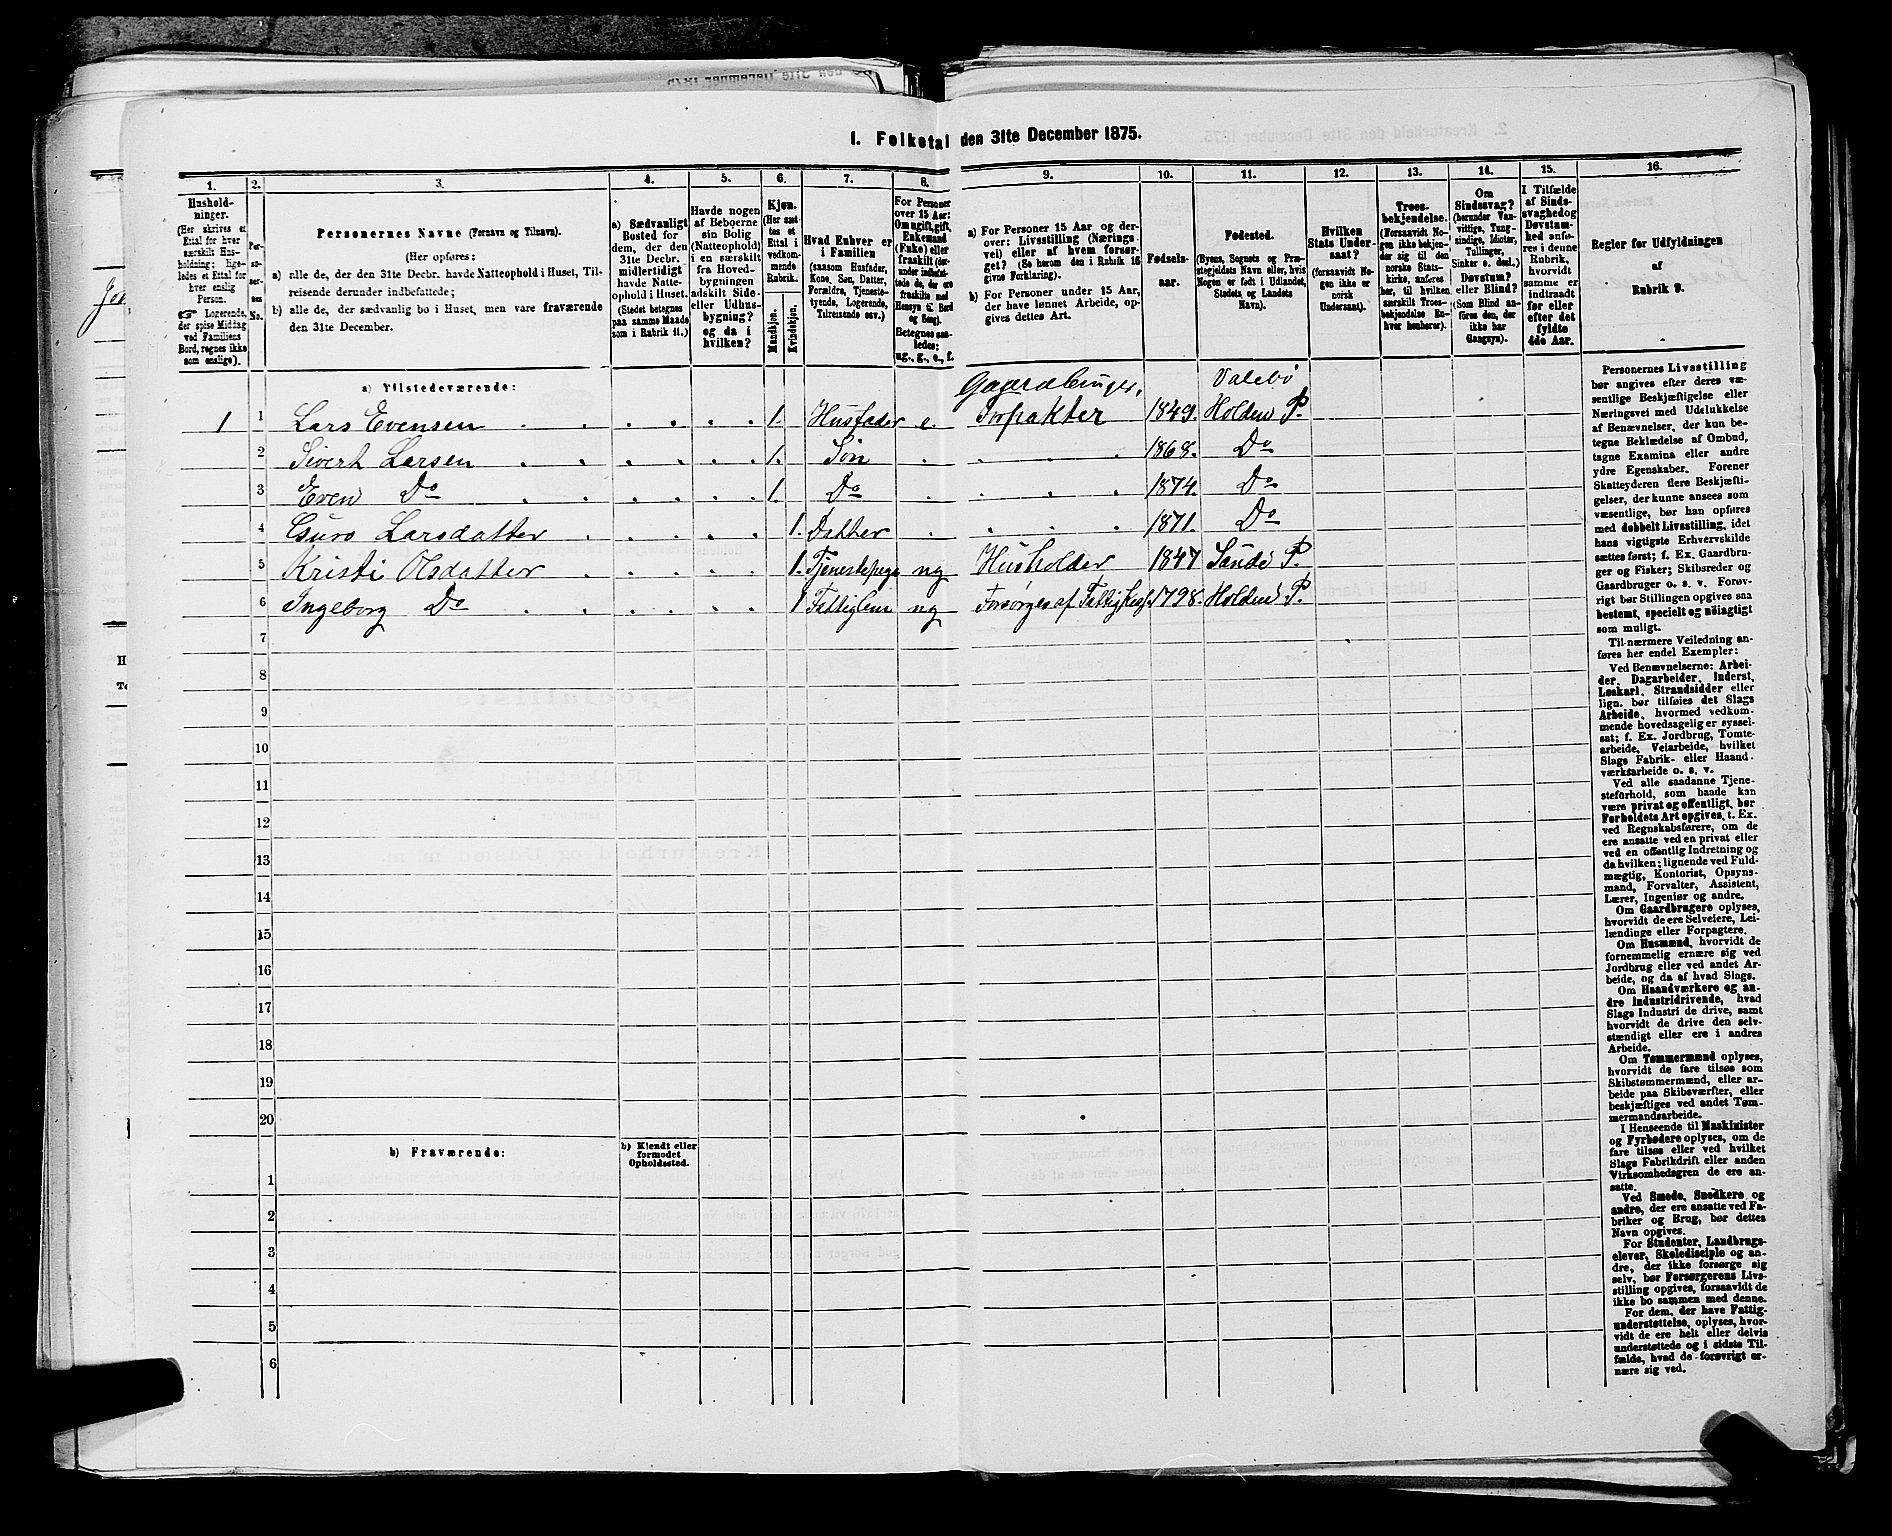 1. Folketal den 31te December 1875.
1.
2.
3.
4.
5.
6.
7.
8.
9.
10.
11.
12.
13.
14.
15.
16.
Hushold-
ninger.
(Her skrives et
Ettal for hver
særskilt Hus-
holdning; lige-
ledes et Ettal for
hver enslig
Person.
☞ Logerende,
der spise Middag
ved Familiens
Bord, regnes ikke
som enslige).
Per-
so-
ner-
nes
No.
Personernes Navne (Fornavn og Tilnavn).
(Her opføres:
a) alle de, der den 31te Decbr. havde Natteophold i Huset, Til-
reisende derunder indbefattede;
b) alle de, der sædvanlig bo i Huset, men vare fraværende
den 31te December.
a) Sædvanligt
Bosted for
dem, der den
31te Decbr.
midlertidigt
havde Natte-
ophold i Huset.
(Stedet betegnes
paa samme Maade
som i Rubrik 11.)
Havde nogen
af Beboerne
sin Bolig
(Natteophold)
i en særskilt
fra Hoved-
bygningen
adskilt Side-
eller Udhus-
bygning?
og da i
hvilken?
Kjøn.
(Her sæt-
tes et
Ettal i
vedkom-
mende
Rubrik.
Mandkjøn.
Kvindekjøn.
Hvad Enhver er
i Familien
(saasom Husfader,
Kone, Søn, Datter,
Forældre, Tjeneste-
tyende, Logerende,
Tilreisende osv.)
For Personer
over 15 Aar:
Om ugift, gift,
Enkemand
(Enke) eller
fraskilt (der-
under indbefat-
tede de, der ere
fraskilte med
Hensyn til Bord
og Seng).
Betegnes saa-
ledes:
ug., g., e., f.
a) For Personer 15 Aar og der-
over: Livsstilling (Nærings-
vei) eller af hvem forsør-
get? (Se herom den i Rubrik 16
givne Forklaring).
b) For Personer under 15 Aar,
der have lønnet Arbeide, op-
gives dettes Art.
Fødsels-
aar.
Fødested.
(Byens, Sognets og Præ-
stegjeldets Navn eller, hvis
Nogen er født i Udlandet,
Stedets og Landets
Navn).
Hvilken
Stats Under-
saat?
(forsaavidt No-
gen ikke er
norsk
Undersaat).
Troes-
bekjendelse.
(Forsaavidt No-
gen ikke bekjen-
der sig til den
norske Stats-
kirke, anføres
her, til hvilken
særskilt Troes-
bekjendelse En-
hver henhører).
Om
Sindssvag?
(herunder Van-
vittige, Tung-
sindige, Idioter,
Tullinger,
Sinker o. desl.)
Døvstum?
eller Blind?
(Som Blind an-
føres den, der
ikke har
Gangsyn).
I Tilfælde
af Sinds-
svaghed og
Døvstum-
hed anfø-
res i denne
Rubrik,
hvorvidt
samme er
indtraadt
før eller
efter det
fyldte
4de Aar.
Regler for Udfyldningen
af
Rubrik 9.
a) Tilstedeværende:
1 1 Lars Evensen 1. Husfader e. Gaardbruger, Forpakter 1849. Valebø Holden P.
2 Sivert Larsen 1. Søn 1868. Do
3 Even Do 1. Do 1874. Do
4 Guro Larsdatter 1. Datter 1871. Do
5 Kristi Olsdatter 1. Tjenestepige ug Husholder 1847 Sande P.
6 Ingeborg Do 1 Fattiglem ug Forsørges af 1798. Holden P.
7
8
9
10
11
12
13
14
15
16
17
18
19
20
b) Fraværende:
b) Kjendt eller
formodet
Opholdssted.
1
2
3
4
5
6
Personernes Livsstilling
bør angives efter deres væ-
sentlige Beskjæftigelse eller
Næringsvei med Udelukkelse
af Benævnelser, der kun be-
tegne Beklædelse af Ombud,
tagne Examina eller andre
ydre Egenskaber. Forener
Skatteyderen flere Beskjæfti-
gelser, der kunne ansees som
væsentlige, bør han opføres
med dobbelt Livsstilling, idet
hans vigtigste Erhvervskilde
sættes først; f. Ex. Gaardbru-
ger og Fisker; Skibsreder og
Gaardbruger o. s. v. Forøv-
rigt bør Stillingen opgives saa
bestemt, specielt og nøiagtigt
som muligt.
Til nærmere Veiledning an-
føres her endel Exempler:
Ved Benævnelserne: Arbei-
der, Dagarbeider, Inderst,
Løskarl, Strandsidder eller
lign. bør tilføies det Slags
Arbeide, hvormed vedkom-
mende hovedsagelig er syssel-
sat; f. Ex. Jordbrug, Tomte-
arbeide, Veiarbeide, hvilket
Slags Fabrik- eller Haand-
værksarbeide o. s. v.
Ved alle saadanne Tjene-
steforhold, som baade kan
være privat og offentligt, bør
Forholdets Art opgives, t. Ex.
ved Regnskabsførere, om de
ere ansatte ved en privat eller
ved en offentlig Indretning og
da hvilken; lignende ved Fuld-
mægtig, Kontorist, Opsyns-
mand, Forvalter, Assistent,
Lærer, Ingeniør og andre.
Om Gaardbrugere oplyses,
hvorvidt de ere Selveiere, Lei-
lændinge eller Forpagtere.
Om Husmænd, hvorvidt de
fornemmelig ernære sig ved
Jordbrug eller ved andet Ar-
beide, og da af hvad Slags.
Om Haandværkere og an-
dre Industridrivende, hvad
Slags Industri de drive, samt
hvorvidt de drive den selv-
stændigt eller ere i andres
Arbeide.
Om Tømmermænd oplyses,
hvorvidt de fare tilsøs som
Skibstømmermænd, eller ar-
beide paa Skibsværfter, eller
beskjæftiges ved andet Tøm-
mermandsarbeide.
I Henseende til Maskinister
og Fyrbødere oplyses, om de
fare tilsøs eller ved hvilket
Slags Fabrikdrift eller anden
Virksomhedsgren de ere an-
satte.
Ved Smede, Snedkere og
andre, der ere ansatte ved Fa-
briker og Brug, bør dettes
Navn opgives.
For Studenter, Landbrugs-
elever, Skoledisciple og an-
dre, der ikke forsørge sig
selv, bør Forsørgerens Livs-
stilling opgives, forsaavidt de
ikke bo sammen med denne.
For dem, der have Fattig-
understøttelse, oplyses, hvor-
vidt de ere helt eller delvis
understøttede og i sidste Til-
fælde, hvad de forøvrigt er-
nære sig ved.